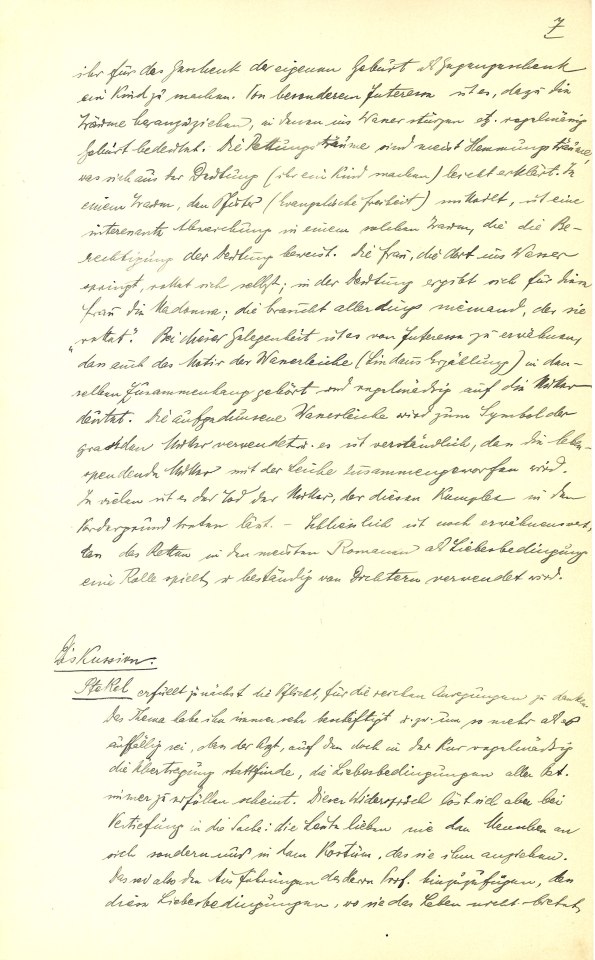 7
ihr für das Geschenk der eigenen Geburt als Gegengeschenk
ein Kind zu machen. Von besonderem Interesse ist es, dazu die
Träume heranzuziehen, in denen ins Wasser stürzen etc. regelmässig
Geburt bedeutet. Die Rettungsträume sind meist Hemmungsträume,
was sich aus der Deutung (ihr ein Kind machen) leicht erklärt. In
einem Traum, den Pfister (Evangelische Freiheit) mitteilt, ist eine
interessante Abweichung in einem solchen Traum, die die Be-
rechtigung der Deutung beweist. Die Frau, die dort ins Wasser
springt, rettet sich selbst; in der Deutung ergibt sich für diese
Frau die Madonna; die braucht allerdings niemand, der sie
"rettet". Bei dieser Gelegenheit ist es von Interesse zu erwähnen,
dass auch das Motiv der Wasserleiche (Lindaus Erzählung) in den-
selben Zusammenhang gehört und regelmässig auf die Mutter
deutet. Die aufgedunsene Wasserleiche wird zum Symbol der
graviden Mutter verwendet u. es ist verständlich, dass die leben-
spendende Mutter mit der Leiche zusammengeworfen wird.
In vielen ist es der Tod der Mutter, der diesen Komplex in den
Vordergrund treten lässt. – Schliesslich ist noch erwähnenswert,
dass das Retten in den meisten Romanen als Liebesbedingung
eine Rolle spielt u. beständig von Dichtern verwendet wird.
Diskussion.
Stekel erfüllt zunächst die Pflicht, für die reichen Anregungen zu danken.
Das Thema habe ihn immer sehr beschäftigt u. zw. um so mehr als es
auffällig sei, dass der Arzt, auf den doch in der Kur regelmässig
die Übertragung stattfinde, die Liebesbedingungen aller Pat.
immer zu erfüllen scheint. Dieser Widerspruch löst sich aber bei
Vertiefung in die Sache: die Leute lieben nie den Menschen an
sich sondern nur in dem Kostüm, das sie ihm angeben.
Das sei also den Ausführungen des Herrn Prof. hinzuzufügen, dass
diese Liebesbedingungen, wo sie das Leben nicht bietet,